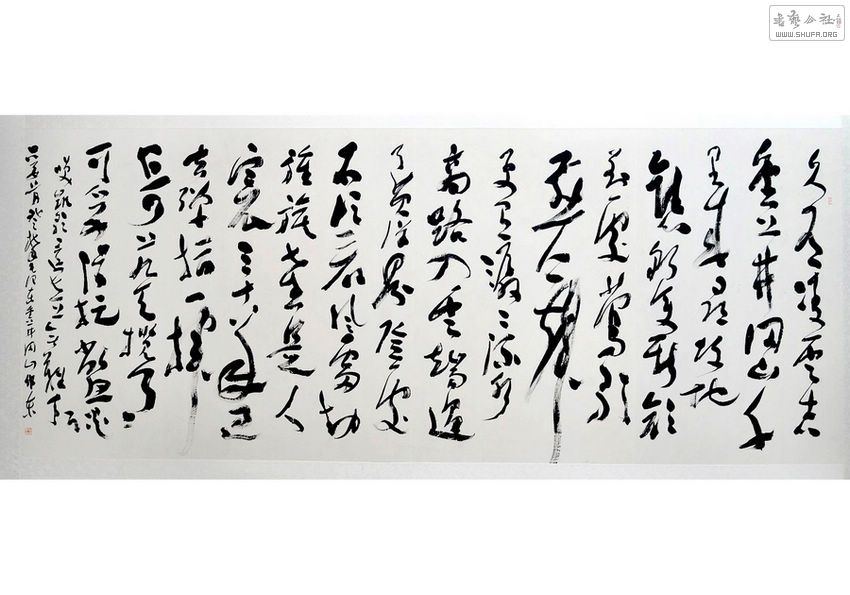 久有凌云志
重上井冈山千
里来寻故地
旧貌变新颜
到处莺歌
燕舞
更有潺潺流水
高路入云端过
了黄洋界险处
不须看风雷动
旌旗奋是人
寰三十八年过
去弹指一挥
间可上九天揽月
可下五洋捉鳖谈
笑凯歌还世上无难事
毛泽东重上井冈山
书法公社
WWW.SHUFA.ORG